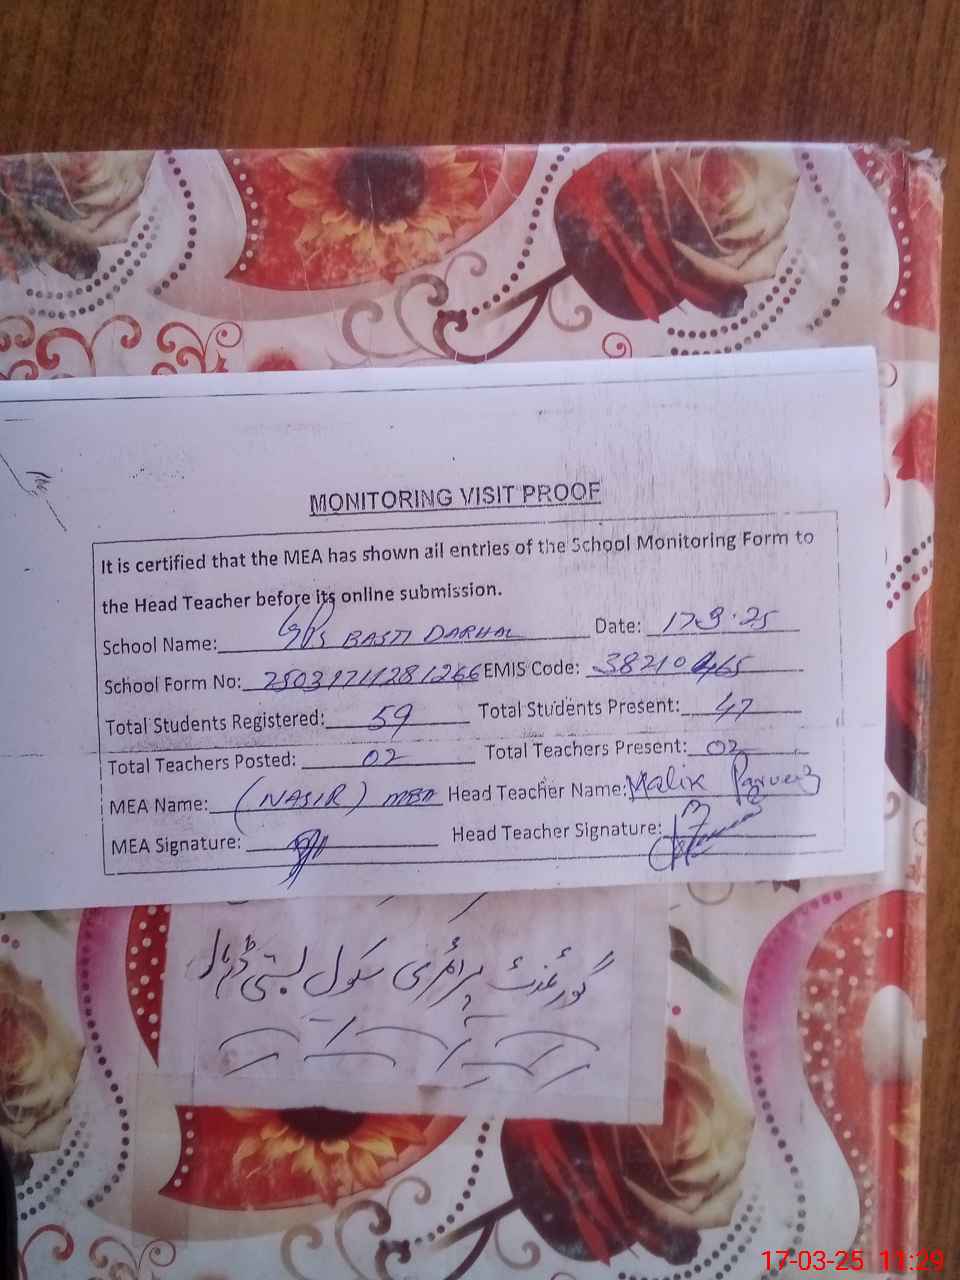 MONITORING VISIT PROOF
It is certified that the MEA has shown all entries of the School Monitoring Form to
the Head Teacher before its online submission.
School Name: GPS BASTI DARHAL Date: 17-3-25
School Form No: 25031711281266 EMIS Code: 38210465
Total Students Registered: 59 Total Students Present: 47
Total Teachers Posted: 02 Total Teachers Present: 02
MEA Name: (NASIR) MEA Head Teacher Name: Malik Parveez
MEA Signature: Head Teacher Signature:
گورنمنٹ پرائمری سکول بستی ڈرہال
17-03-25 11:29